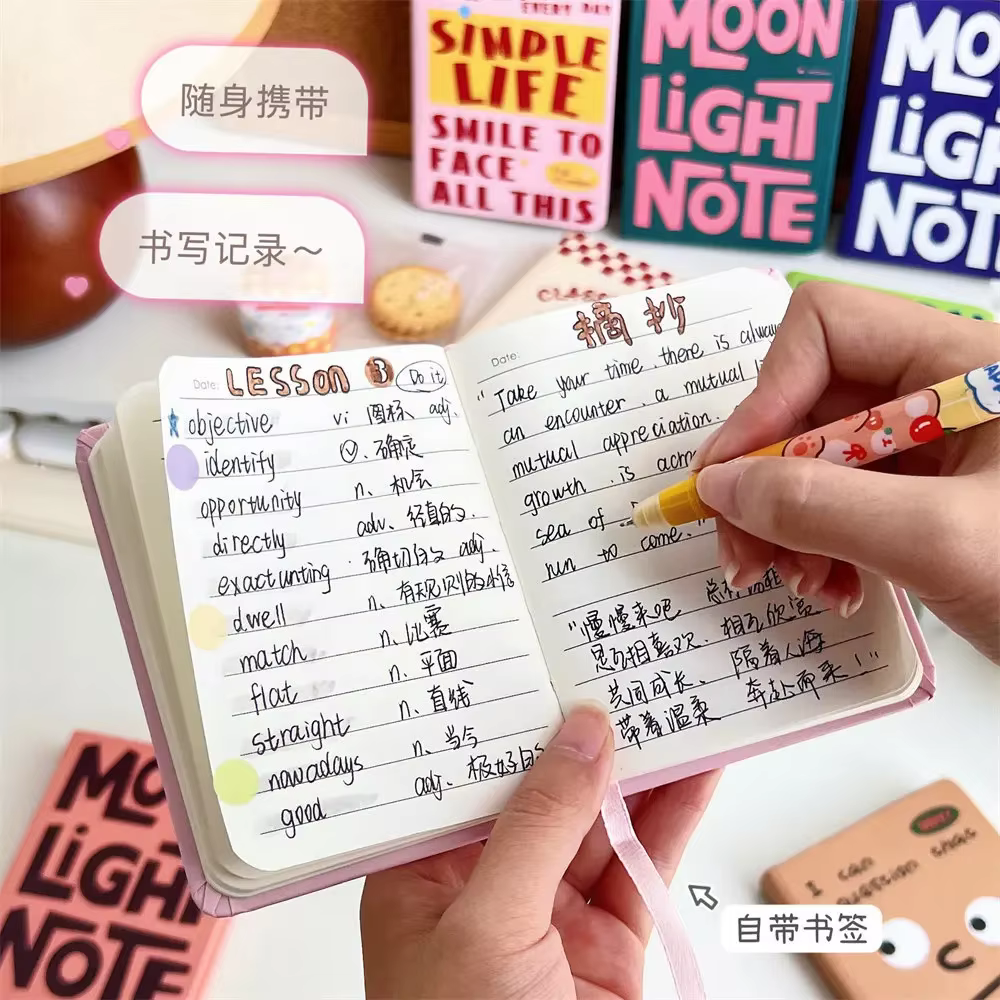 EVERY DAY
SIMPLE
LIFE
SMILE TO
FACE
ALL THIS
MOON
LIGHT
NOTE
MO
LIG
NOT
随身携带
书写记录～
CLASS
Date: LESSON 3 Do it
objective vi 图标 adj.
identify 确定
opportunity n、机会
directly adv、径直的.
exactunting 确切的 adj.
dwell n、有规则的
match n、比赛
flat n、平面
straight n、直线
nowadays n、当今
good adj、极好的
Date: 摘抄
"Take your time, there is alway
an encounter, a mutual
mutual appreciation.
growth, is
sea of
run to come."
"慢慢来吧 总有
是互相喜欢、相互欣赏
共同成长、 隔着人海
带着温柔 奔赴而来！"
自带书签
MO
LIGH
NOTE
I can